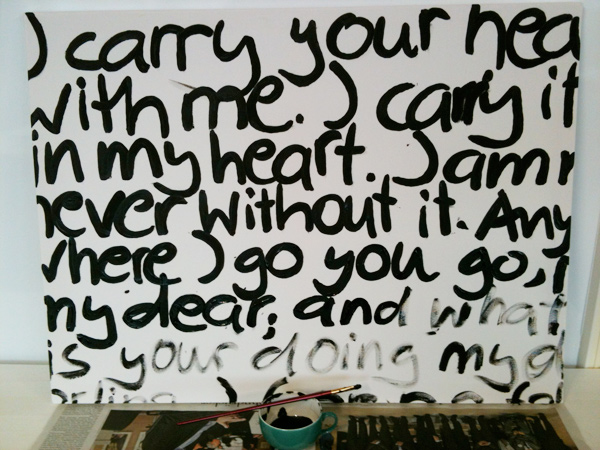 I carry your hea
with me. I carry it
in my heart. I am
never without it. Any
where I go you go,
my dear, and what
is your doing my d
arling. I